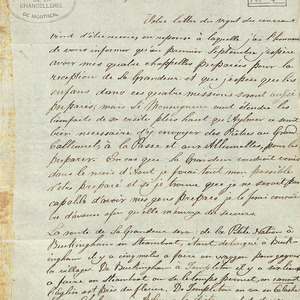 DE LA
CHANCELLERIE
DE MONTRÉAL
lettre du vingt du courant
vient d'être reçue, en réponse à laquelle j'ai l'honneur
de vous informer qu'au premier Septembre j'espère
avoir mes quatre chapelles préparées pour la
réception de Sa Grandeur et que j'espère que les
enfans dans ces quatre missions seront aussi
préparés; mais si Monseigneur veut étendre les
bienfaits de sa visite plus haut qu'Aylmer ce serait
bien necessaire d'y envoyer des Prêtres au Grand
Calumet, à la Passe et aux Allumettes, pour les
préparer. En cas que Sa Grandeur voudrait venir
dans le mois d'Août je ferai tout mon possible
d'être préparé et si je trouve que je ne serai pas
capable d'avoir mes gens préparés je le ferai
d'avance afin qu'elle m'envoye du secours
La route de Sa Grandeur sera: de la Petite Nation à
Buckingham en Steamboat,
il y a cinq milles à faire en waggon pour gagner
le village. De Buckingham à Templeton il y a six lieues
à faire en Steamboat ou
l'église est près du fleuve. De Templeton